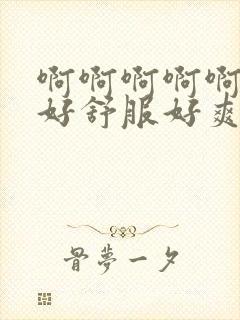 啊啊啊啊啊
好舒服好爽
骨夢一夕